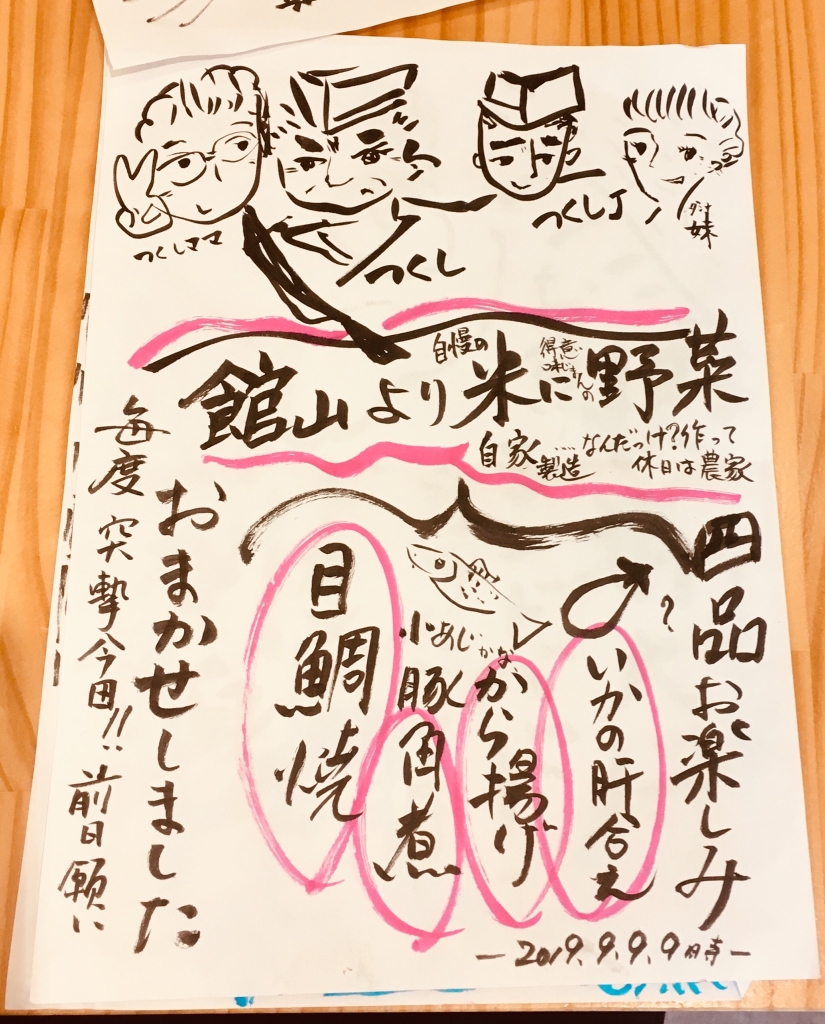 つくしママ
つくし
つくしJ
妹
館山より自慢の米に得意味じまんの野菜
自家製造....なんだっけ?作って
休日は農家
四品お楽しみ
?
いかの肝合え
小あじかな
から揚げ
豚角煮
目鯛焼
おまかせしました
毎度突撃今田!!前日願い
－2019.9.9.9時－